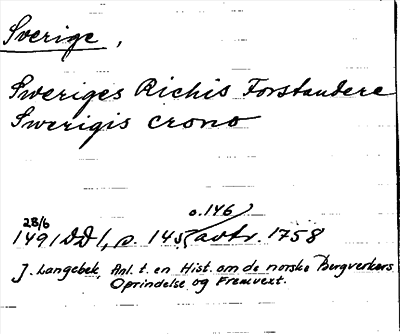 Sverige,
Sweriges Richis Forstandere
Swerigis crono
o.146
28/6
1491 DD1, s. 145 avtr. 1758
J. Langebek, Anl. t. en Hist. om de norske Bergverkers
Oprindelse og Fremvext.